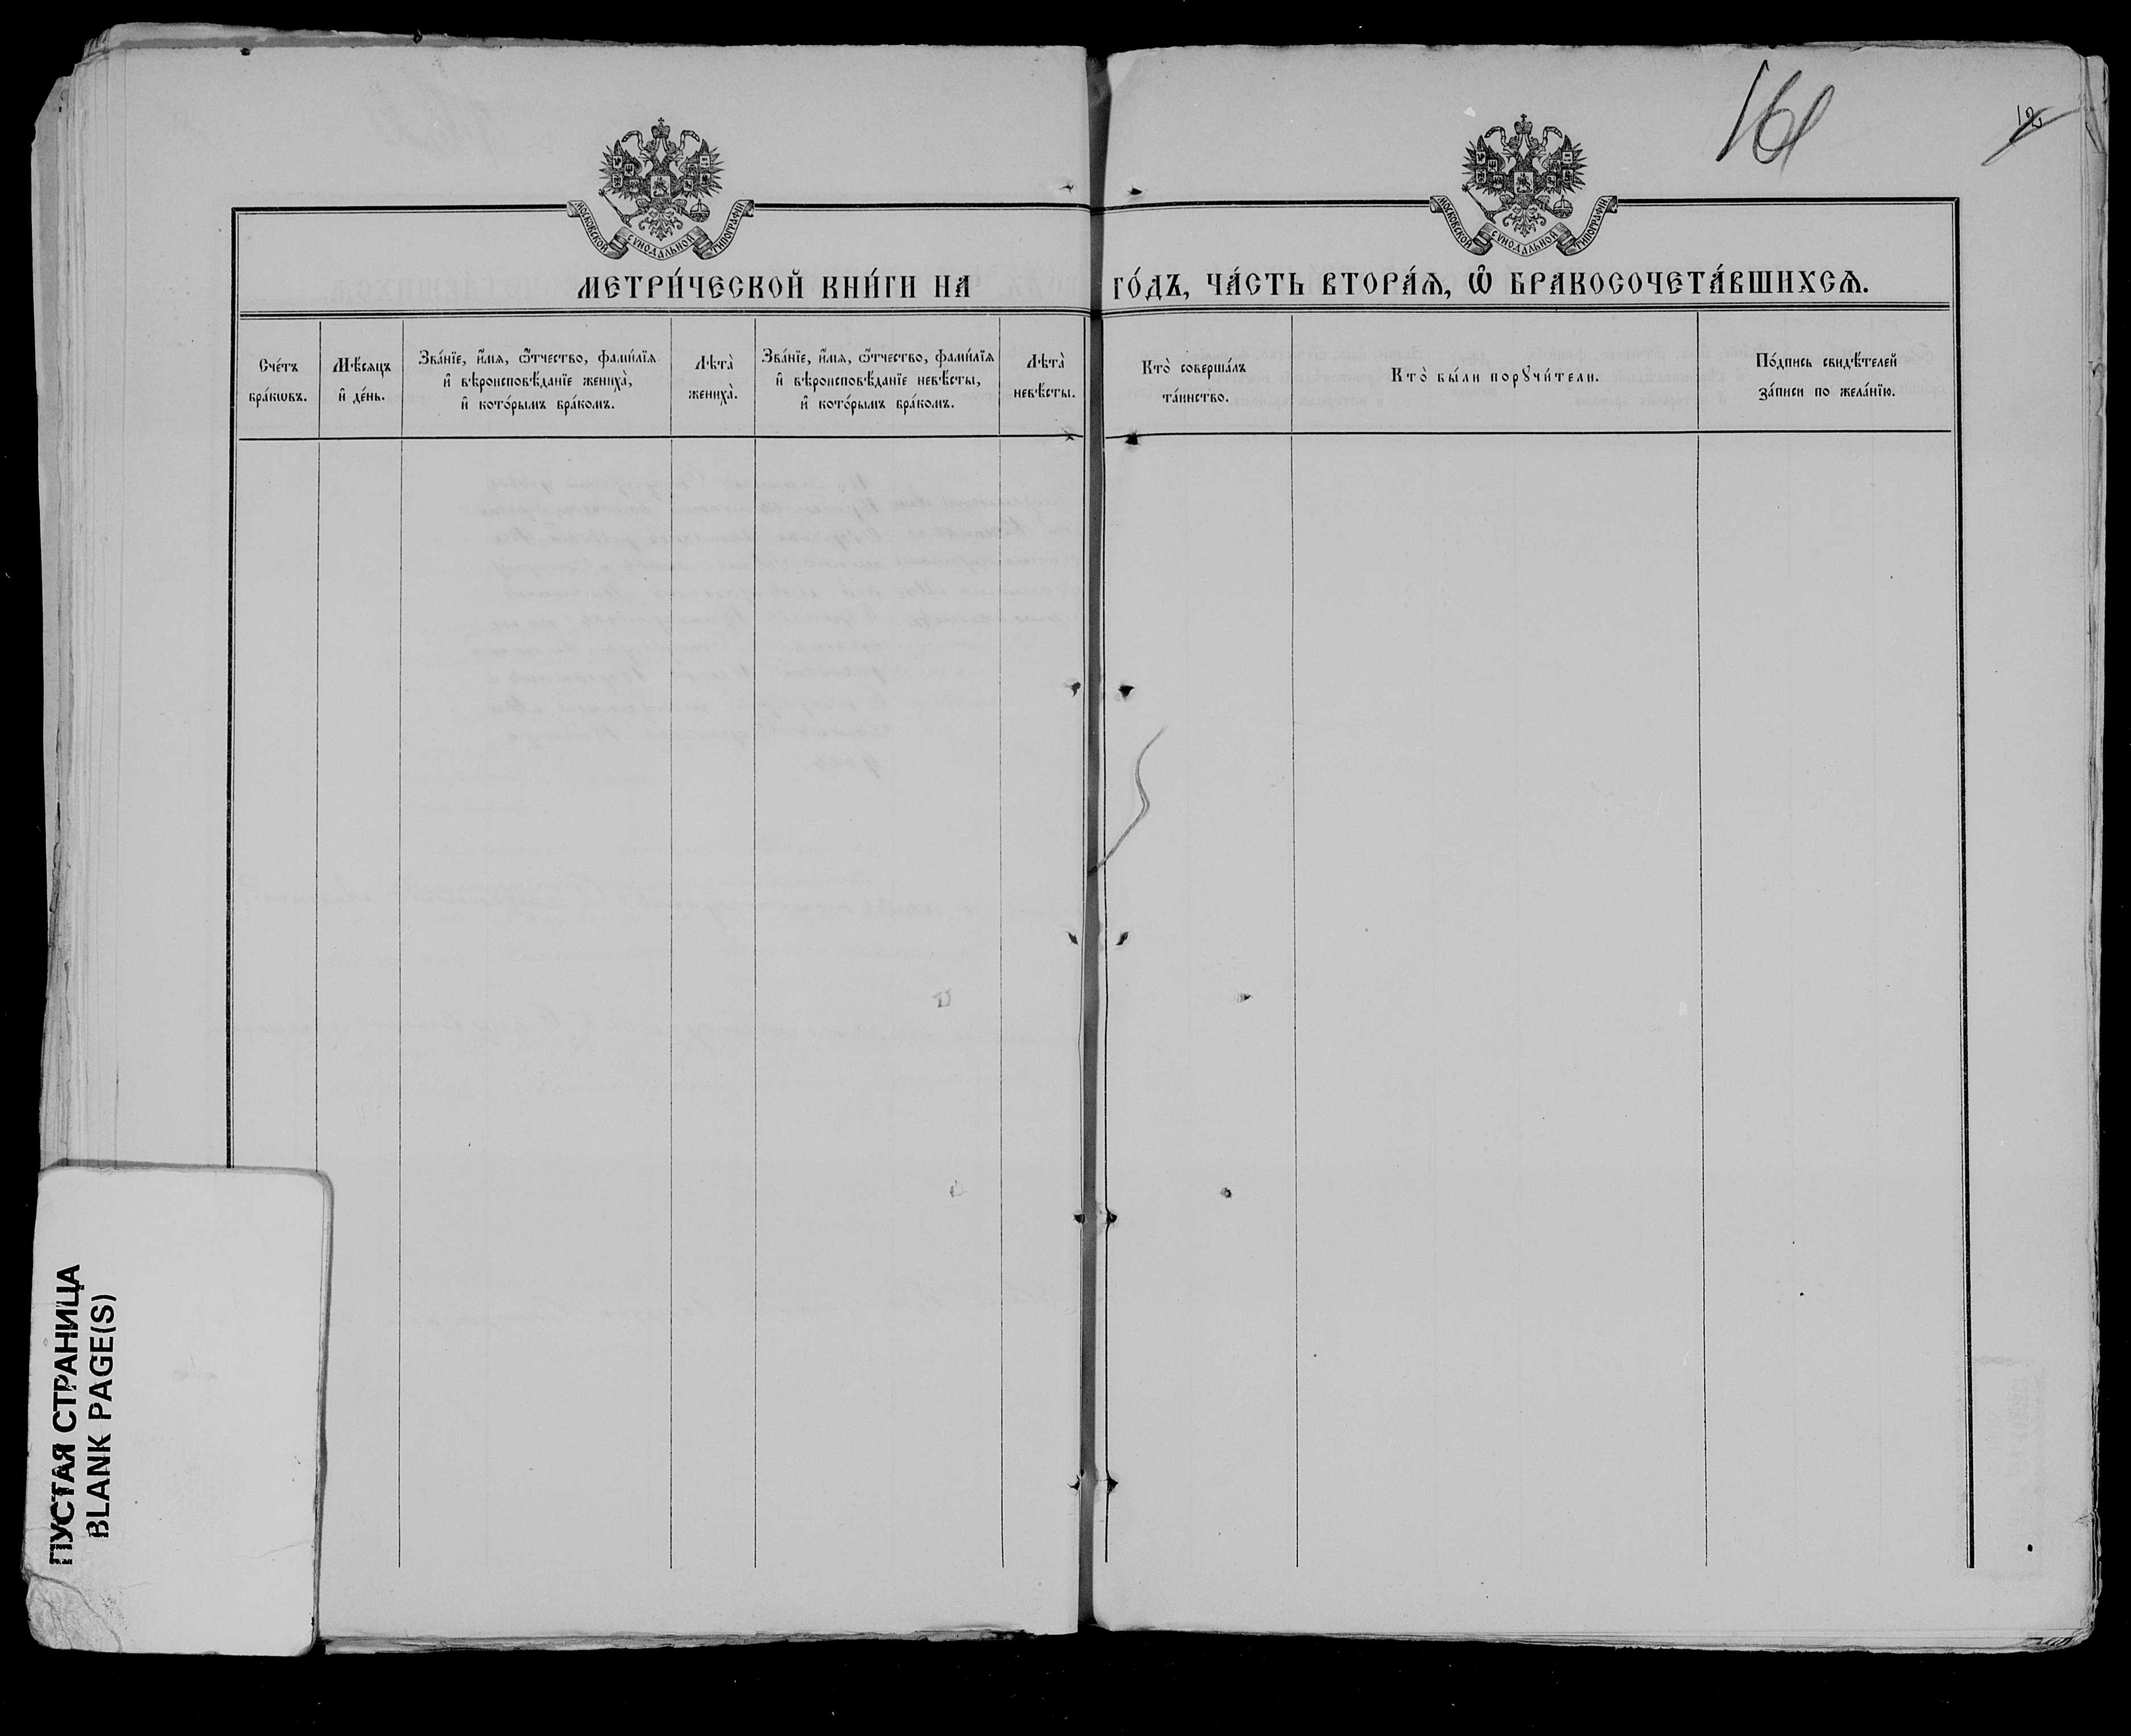 161
12
МОСКОВСКОЙ СѴНОДАЛЬНОЙ ТИПОГРАФІИ
МОСКОВСКОЙ СѴНОДАЛЬНОЙ ТИПОГРАФІИ
МЕТРИ́ЧЕСКОЙ КНИ́ГИ НА ГО́ДЪ, ЧА́СТЬ ВТОРА́Ѧ, Ѽ БРАКОСОЧЕТА́ВШИХСѦ.
Сче́тъ
бра́кѡвъ.
Мѣ́сяцъ
и҆ де́нь.
Зва́нїе, и҆́мѧ, ѻ҆́тчество, фами́лїѧ
и҆ вѣроисповѣ́данїе жениха̀,
и҆ кото́рымъ бра́комъ.
Лѣта̀
жениха̀.
Зва́нїе, и҆́мѧ, ѻ҆́тчество, фами́лїѧ
и҆ вѣроисповѣ́данїе невѣ́сты,
и҆ кото́рымъ бра́комъ.
Лѣта̀
невѣ́сты.
Кто̀ соверша́лъ
та́инство.
Кто̀ бы́ли порꙋчи́тели.
По́дпись свидѣ́телей
за́писи по жела́нїю.
ПУСТАЯ СТРАНИЦА
BLANK PAGE(S)